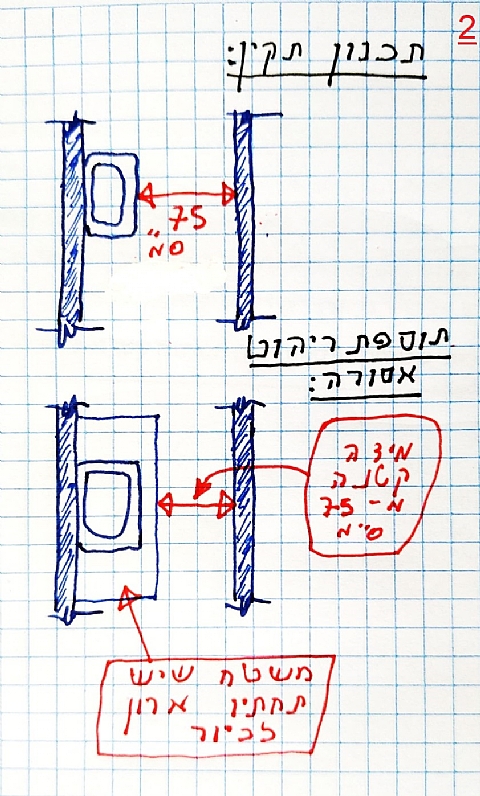 2
תכנון תקין:
75
ס"מ
תוספת ריהוט
אסורה:
מידה
קטנה
מ- 75
ס"מ
משטח שיש
תחתיו ארון
לכיור